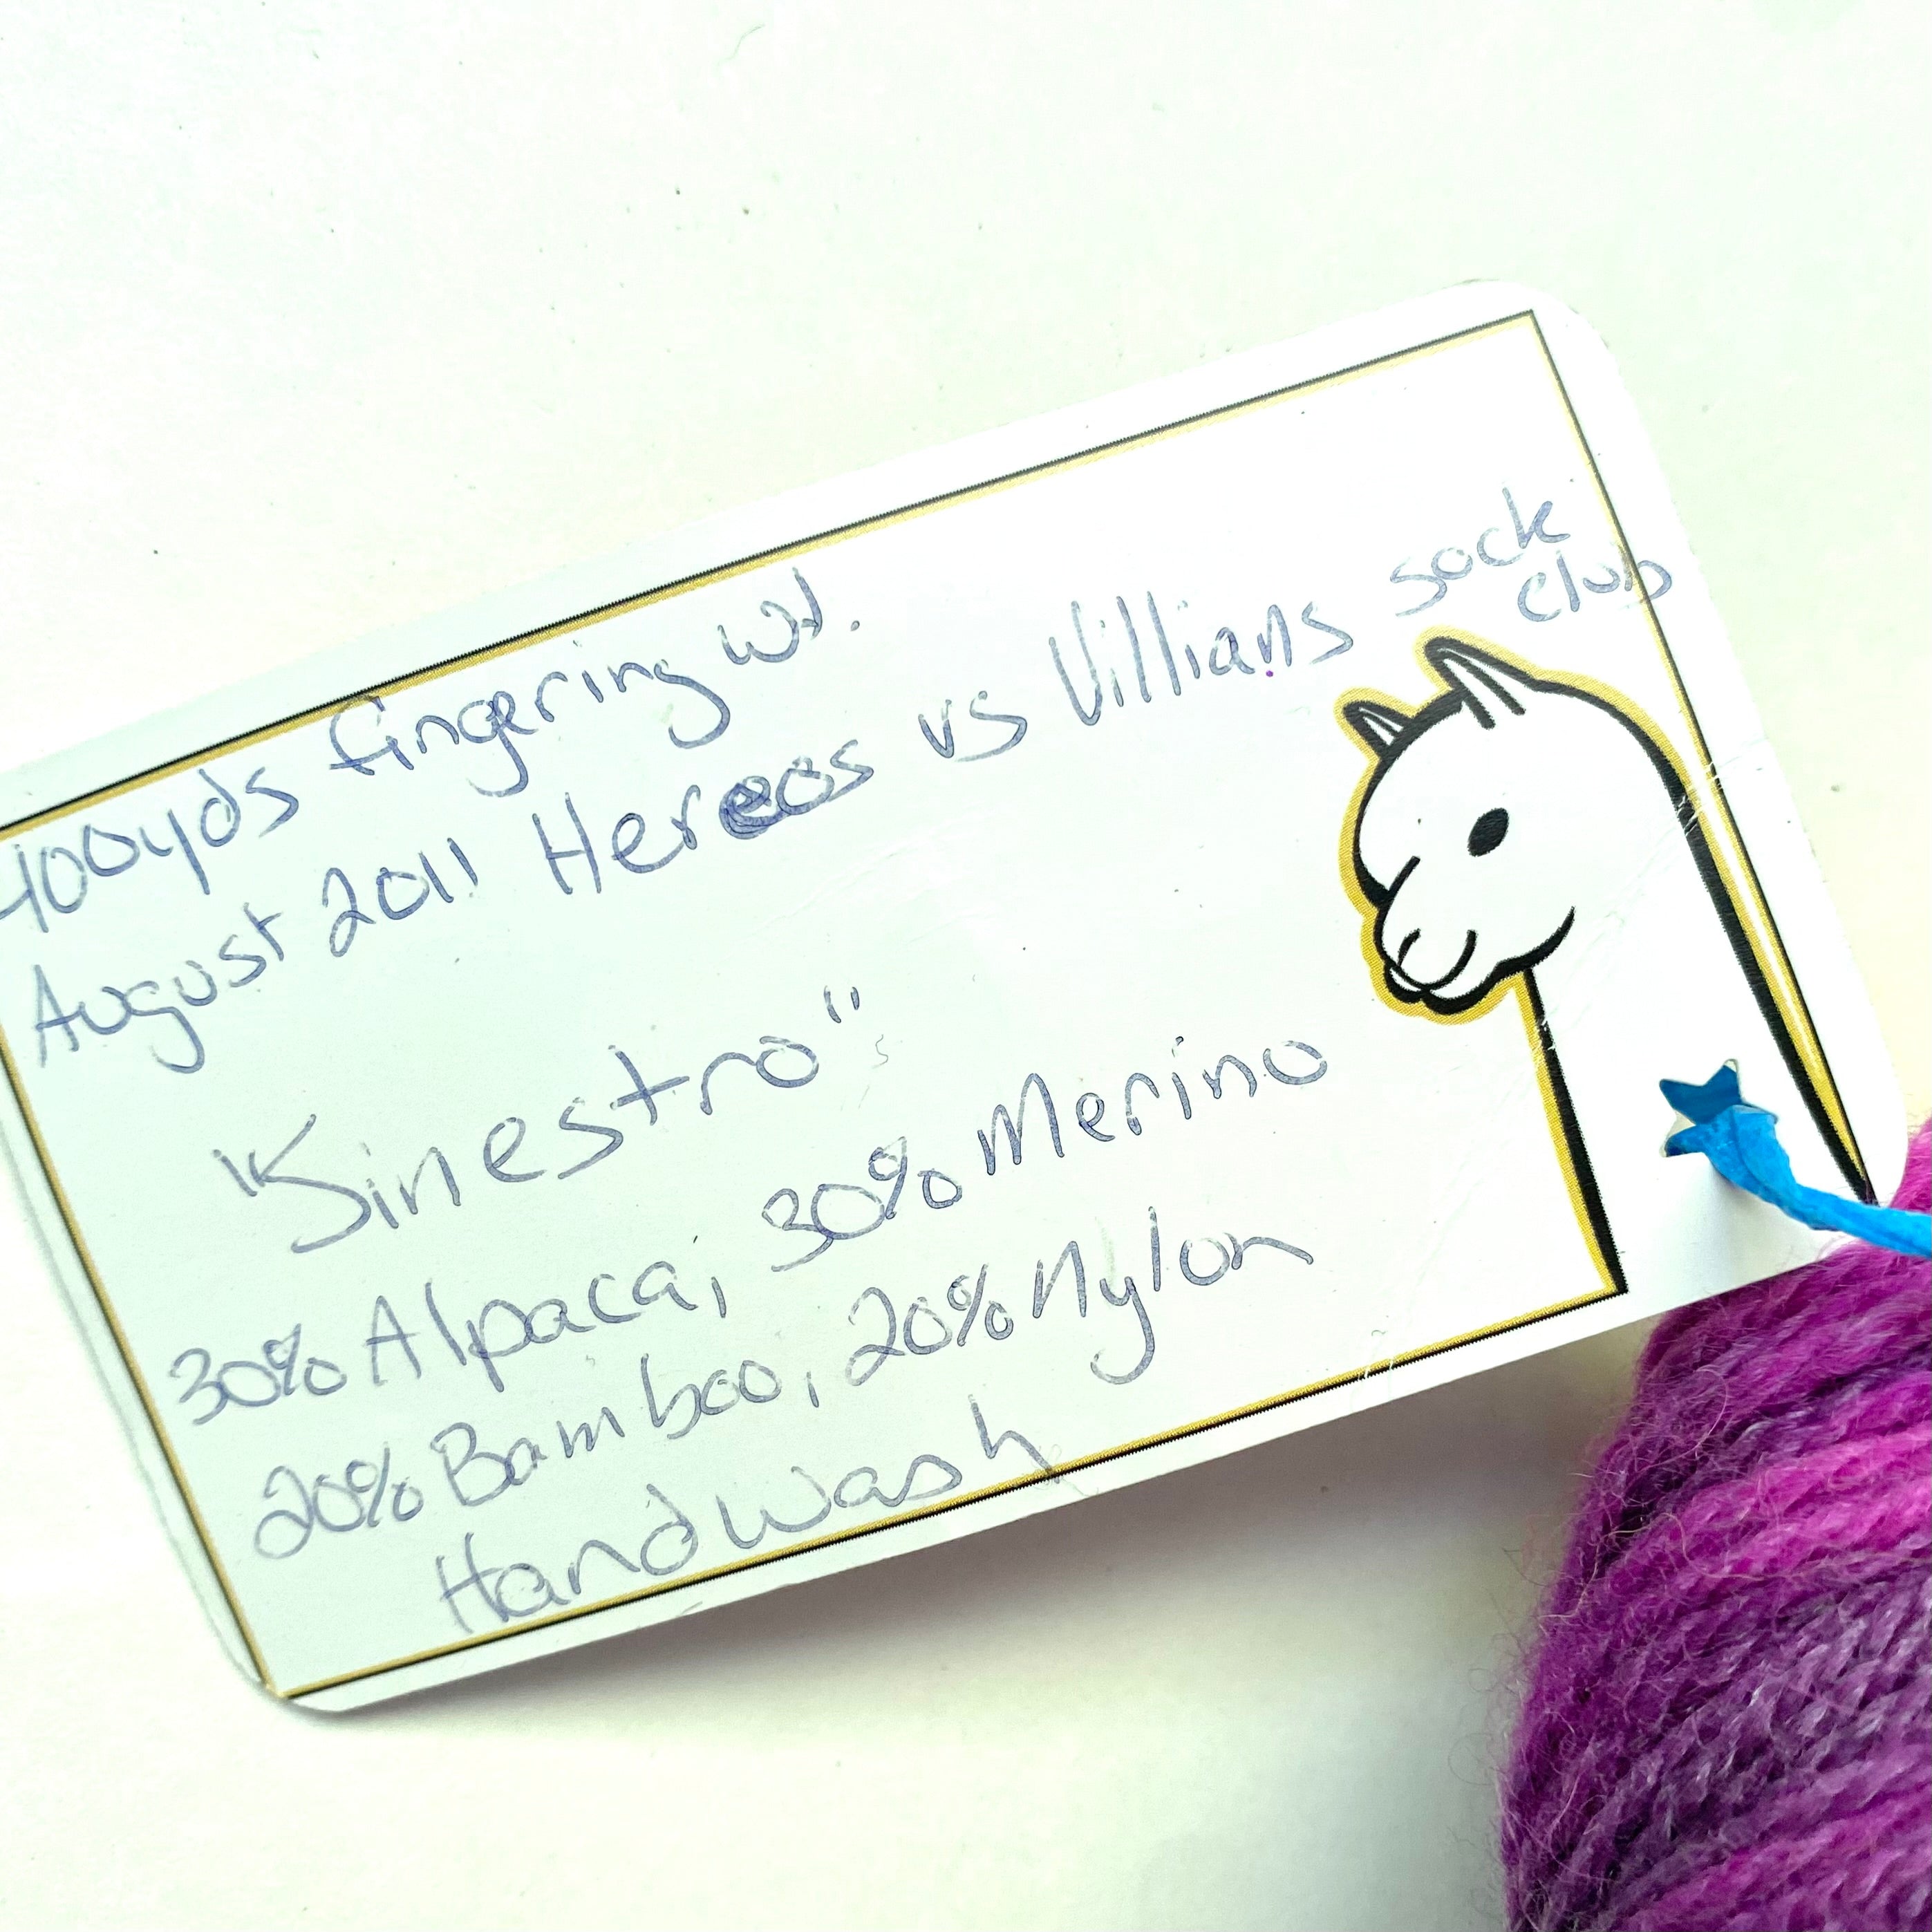 400yds fingering wt.
August 2011 Hereos vs Villians sock club
"Sinestro"
30% Alpaca, 30% Merino
20% Bamboo, 20% Nylon
Handwash